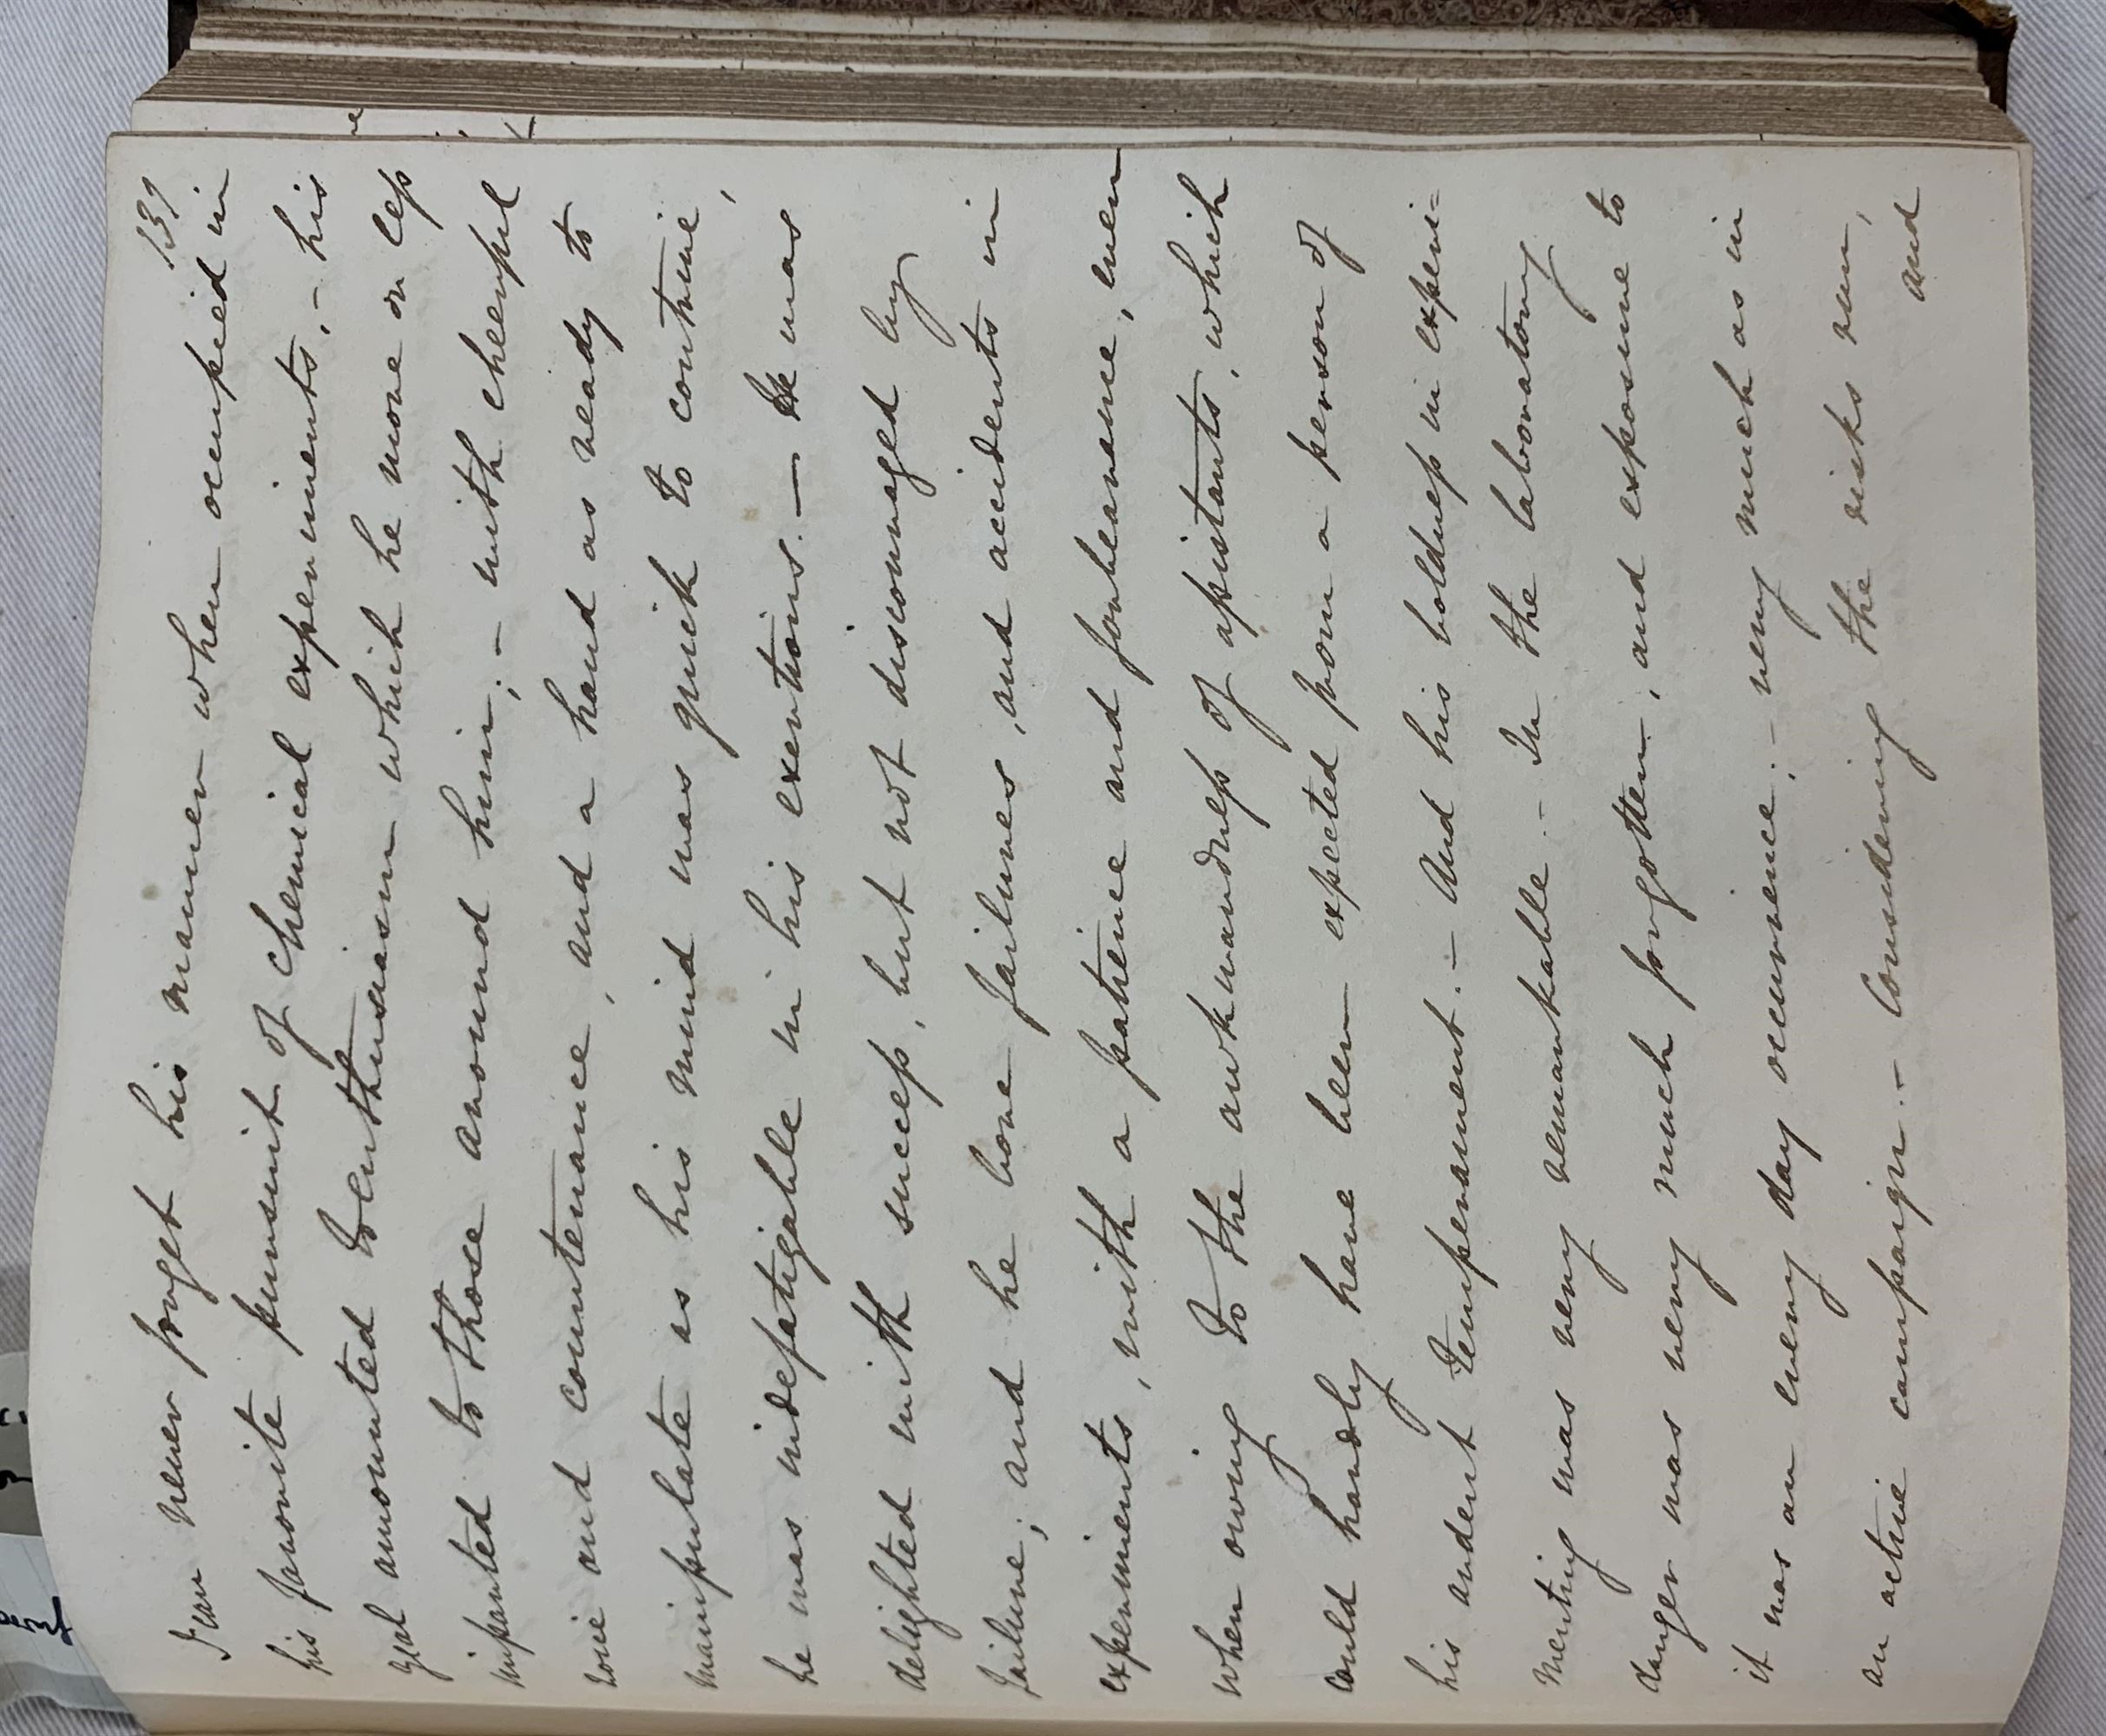 139
I can never forget his manner when occupied in
his favourite pursuit of chemical experiments, – his
zeal amounted to enthusiasm which he more or less
imparted to those around him; – with cheerful
voice and countenance, and a hand as ready to
manipulate as his mind was quick to contrive,
he was indefatigable in his exertions. — He was
delighted with success, but not discouraged by
failure; and he bore failures, and accidents in
experiments, with a patience and forbearance, even
when owing to the awkwardness of assistants, which
could hardly have been expected from a person of
his ardent temperament. – And his boldness in experi=
menting was very remarkable. – In the laboratory
danger was very much forgotten, and exposure to
it was an every day occurrence; – very much as in
an active campaign. – Considering the risks run,
and